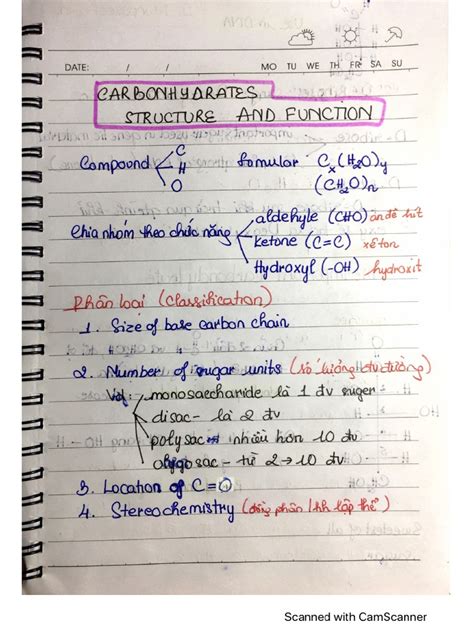 DATE: / / MO TU WE TH FR SA SU
CARBONHYDRATES
STRUCTURE AND FUNCTION
Compound C H O fomular Cx(H2O)y
(CH2O)n
Chia nhóm theo chức năng aldehyle (CHO) anđêhit
Ketone (C=C) xêton
Hydroxyl (-OH) hydroxit
Phân loại (Classification)
1. Size of base carbon chain
2. Number of sugar units (số lượng đv đường)
Vd: - monosaccharide là 1 đv suger
- disac- là 2 đv
- polysac nhiều hơn 10 đv
olygosac - từ 2→10 đv
3. Location of C=O
4. Stereochemistry (đồng phân lập thể)
Scanned with CamScanner